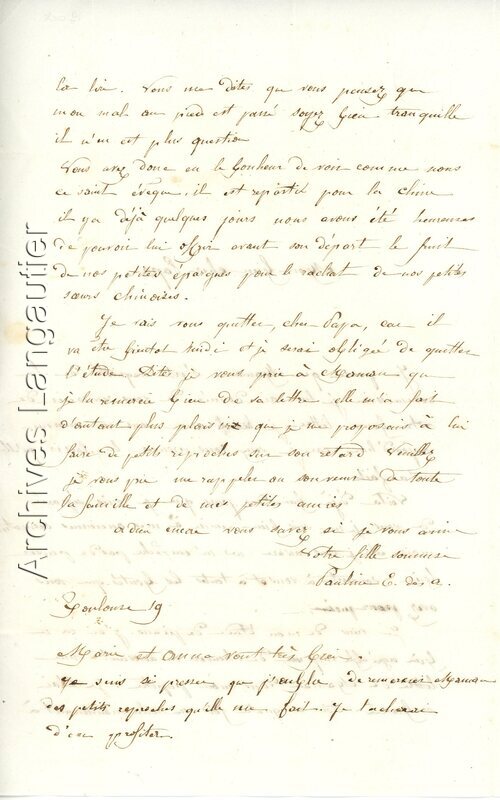 la lire. Vous me dites que vous pensez que
mon mal au pied est passé soyez bien tranquille
il n'en est plus question
Vous avez donc eu le bonheur de voir comme nous
ce saint évêque, il est repartit pour la Chine
il y a déjà quelques jours nous avons été heureuses
de pouvoir lui offrir avant son départ le fruit
de nos petites épargnes pour le rachat de nos petites
sœurs chinoises.
Je vais vous quitter, cher Papa, car il
va être bientot midi et je serai obligée de quitter
l'étude Dites je vous prie à Maman que
je la remercie bien de sa lettre elle m'a fait
d'autant plus plaisir que je me proposais à lui
faire de petits reproches sur son retard Veuillez
je vous prie me rappeler au souvenir de toute
la famille et de mes petites amies
adieu encore vous savez si je vous aime
Votre fille soumise
Pauline E. des a.
Toulouse 19
Marie et Anna vont très bien.
Je suis si pressée que j'oublie de remercier Maman
des petits reproches qu'elle me fait. Je tacherai
d'en profiter
Archives Langautier